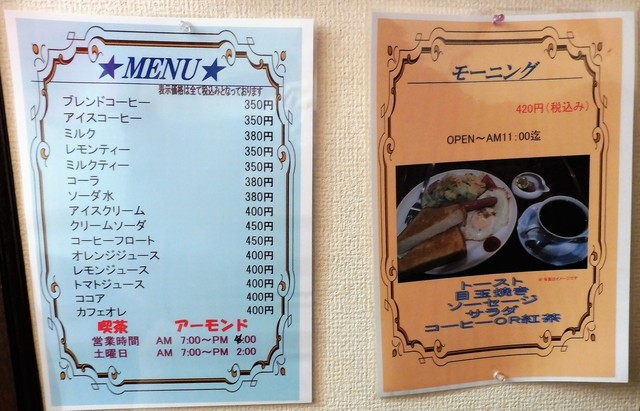 ★MENU★
表示価格は全て税込みとなっております
ブレンドコーヒー 350円
アイスコーヒー 350円
ミルク 380円
レモンティー 350円
ミルクティー 350円
コーラ 380円
ソーダ水 380円
アイスクリーム 400円
クリームソーダ 450円
コーヒーフロート 450円
オレンジジュース 400円
レモンジュース 400円
トマトジュース 400円
ココア 400円
カフェオレ 400円
喫茶 アーモンド
営業時間 AM 7:00~PM :00
土曜日 AM 7:00~PM 2:00
モーニング
420円(税込み)
OPEN~AM11:00迄
トースト
目玉焼き
ソーセージ
サラダ
コーヒーOR紅茶